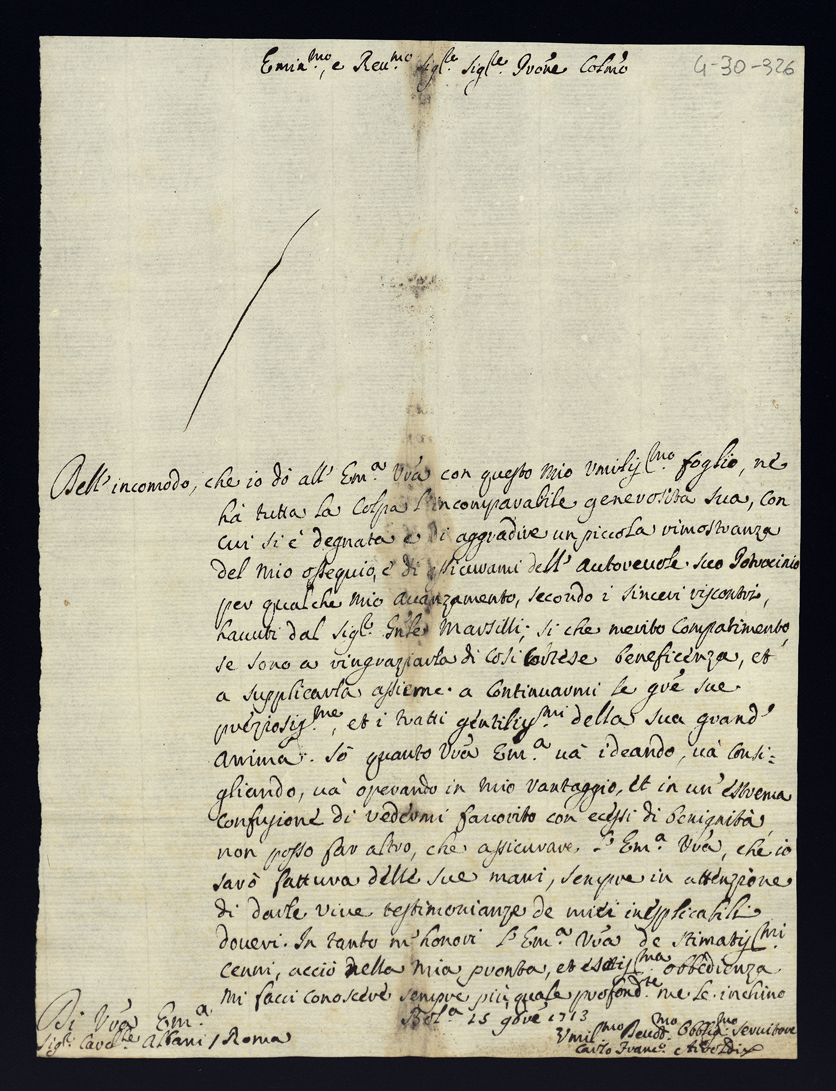 Emin.mo, e Reu.mo Sig.re Sig.re Prone Colmo
4-30-326
Dell'incomodo, che io dò all' Em.a Vrã con questo mio Vmiliss.mo foglio, ne
hà tutta la Colpa l'incomparabile generosità sua, con
cui si è degnata e di aggradire un piccola rimostranza
del mio ossequio, e di assicurarmi dell' autoreuole suo Patrocinio
per qualche mio auanzamento, secondo i sinceri riscontri,
hauuti dal Sig.re Marsilli; si che merito Compatimento,
se sono a ringraziarla di così cortese beneficenza, et
a supplicarla assieme a continuarmi le grẽ sue
preziosiss.me, et i tratti gentiliss.mi della sua grand'
anima. Sò quanto Vrã Em.a uà ideando, uà consi=
gliando, uà operando in mio vantaggio, et in un' estrema
confusione di vedermi fauorito con ecessi di benignità
non posso far altro, che assicurare l'Em.a Vrã, che io
sarò fattura delle sue mani, sempre in attenzione
di darle viue testimonianze de miei inesplicabili
doueri. In tanto m'honori l'Em.a Vrã de stimatiss.mi
cenni, acciò nella mia pronta, et esatiss.ma obbedienza
mi facci conoscere sempre più quale profond.te me le inchino
Di Vrã Em.a Bol.a 15 9bre 1713
Sig.r Card.le Albani / Roma Vmil.mo Deuot.mo Obblig.mo Seruitore
Carlo Franc.o